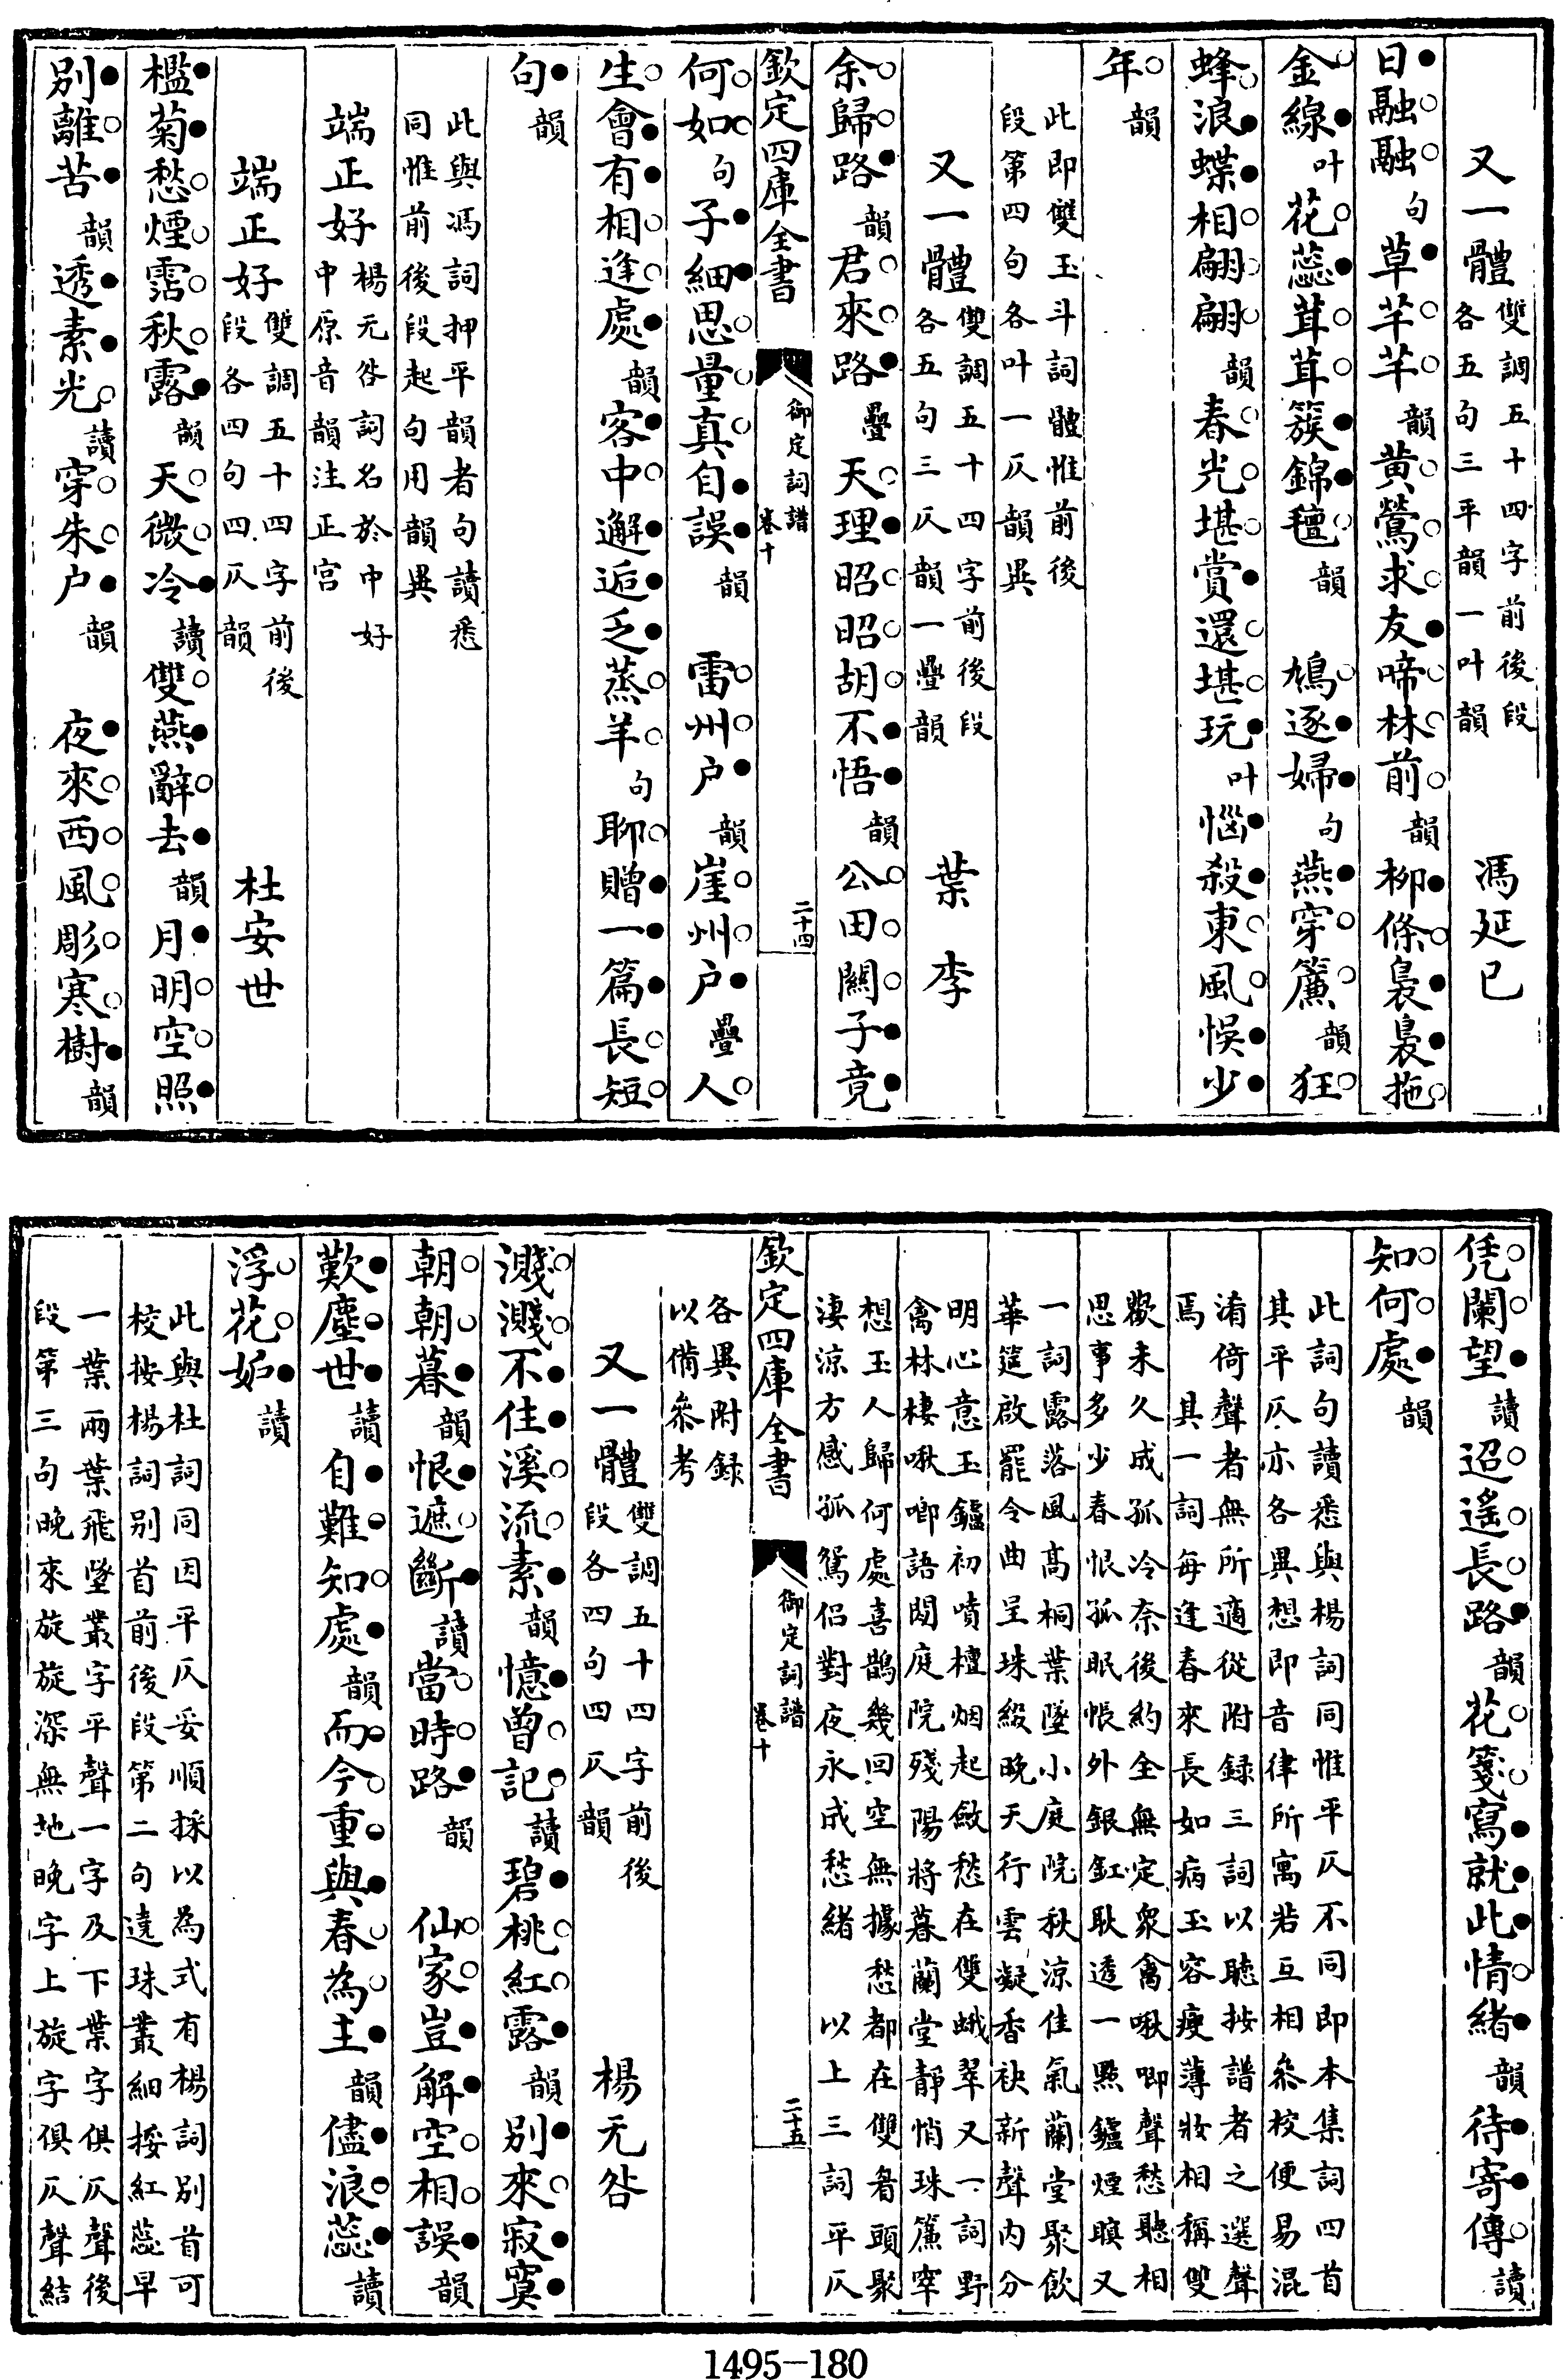 又一體雙調五十四字前後段各五句三平韻一叶韻 馮延已
日融融句草芊芊韻黄鶯求友啼林前韻柳條裊裊拖
金線叶花蕊茸茸簇錦氊韻 鳩逐婦句燕穿簾韻狂
蜂浪蝶相翩翩韻春光堪賞還堪玩叶惱殺東風悞少
年韻
此即雙玉斗詞體惟前後
段第四句各叶一仄韻異
又一體雙調五十四字前後段各五句三仄韻一疊韻 葉李
余歸路韻君來路疊天理昭昭胡不悟韻公田關子竟
欽定四庫全書 御定詞譜 卷十 二十四
何如句子細思量真自誤韻 雷州户韻崖州户疊人
生會有相逢處韻客中邂逅乏蒸羊句聊贈一篇長短
句韻
此與馮詞押平韻者句讀悉
同惟前後段起句用韻異
端正好楊无咎詞名於中好中原音韻注正宫
端正好雙調五十四字前後段各四句四仄韻 杜安世
檻菊愁煙霑秋露韻天微冷讀雙燕辭去韻月明空照
别離苦韻透素光讀穿朱户韻 夜來西風彫寒樹韻
凭闌望讀迢遥長路韻花箋寫就此情緒韻待寄傳讀
知何處韻
此詞句讀悉與楊詞同惟平仄不同即本集詞四首
其平仄亦各異想即音律所寓若互相叅校便易混
淆倚聲者無所適從附録三詞以聽按譜者之選聲
焉 其一詞每逢春來長如病玉容瘦薄妝相稱雙
歡未久成孤冷奈後約全無定衆禽啾唧聲愁聽相
思事多少春恨孤眠帳外銀釭耿透一點鑪煙暝又
一詞露落風高桐葉墜小庭院秋涼佳氣蘭堂聚飲
華筵啟罷令曲呈珠綴晚天行雲凝香袂新聲内分
明心意玉鑪初噴檀烟起斂愁在雙蛾翠又一詞野
禽林棲啾唧語閟庭院殘陽將暮蘭堂靜悄珠簾窣
想玉人歸何處喜鵲幾回空無據愁都在雙眉頭聚
淒涼方感孤鴛侣對夜永成愁緒 以上三詞平仄
欽定四庫全書 御定詞譜 卷十 二十五
各異附録
以備叅考
又一體雙調五十四字前後段各四句四仄韻 楊无咎
濺濺不住溪流素韻憶曾記讀碧桃紅露韻别來寂寞
朝朝暮韻恨遮斷讀當時路韻 仙家豈解空相誤韻
歎塵世讀自難知處韻而今重與春為主韻儘浪蕊讀
浮花妬讀
此與杜詞同因平仄妥順採以為式有楊詞别首可
校按楊詞别首前後段第二句遶珠叢細接紅蕊早
一葉兩葉飛墜叢字平聲一字及下葉字俱仄聲後
段第三句晚來旋旋深無地晚字上旋字俱仄聲結
1495-180